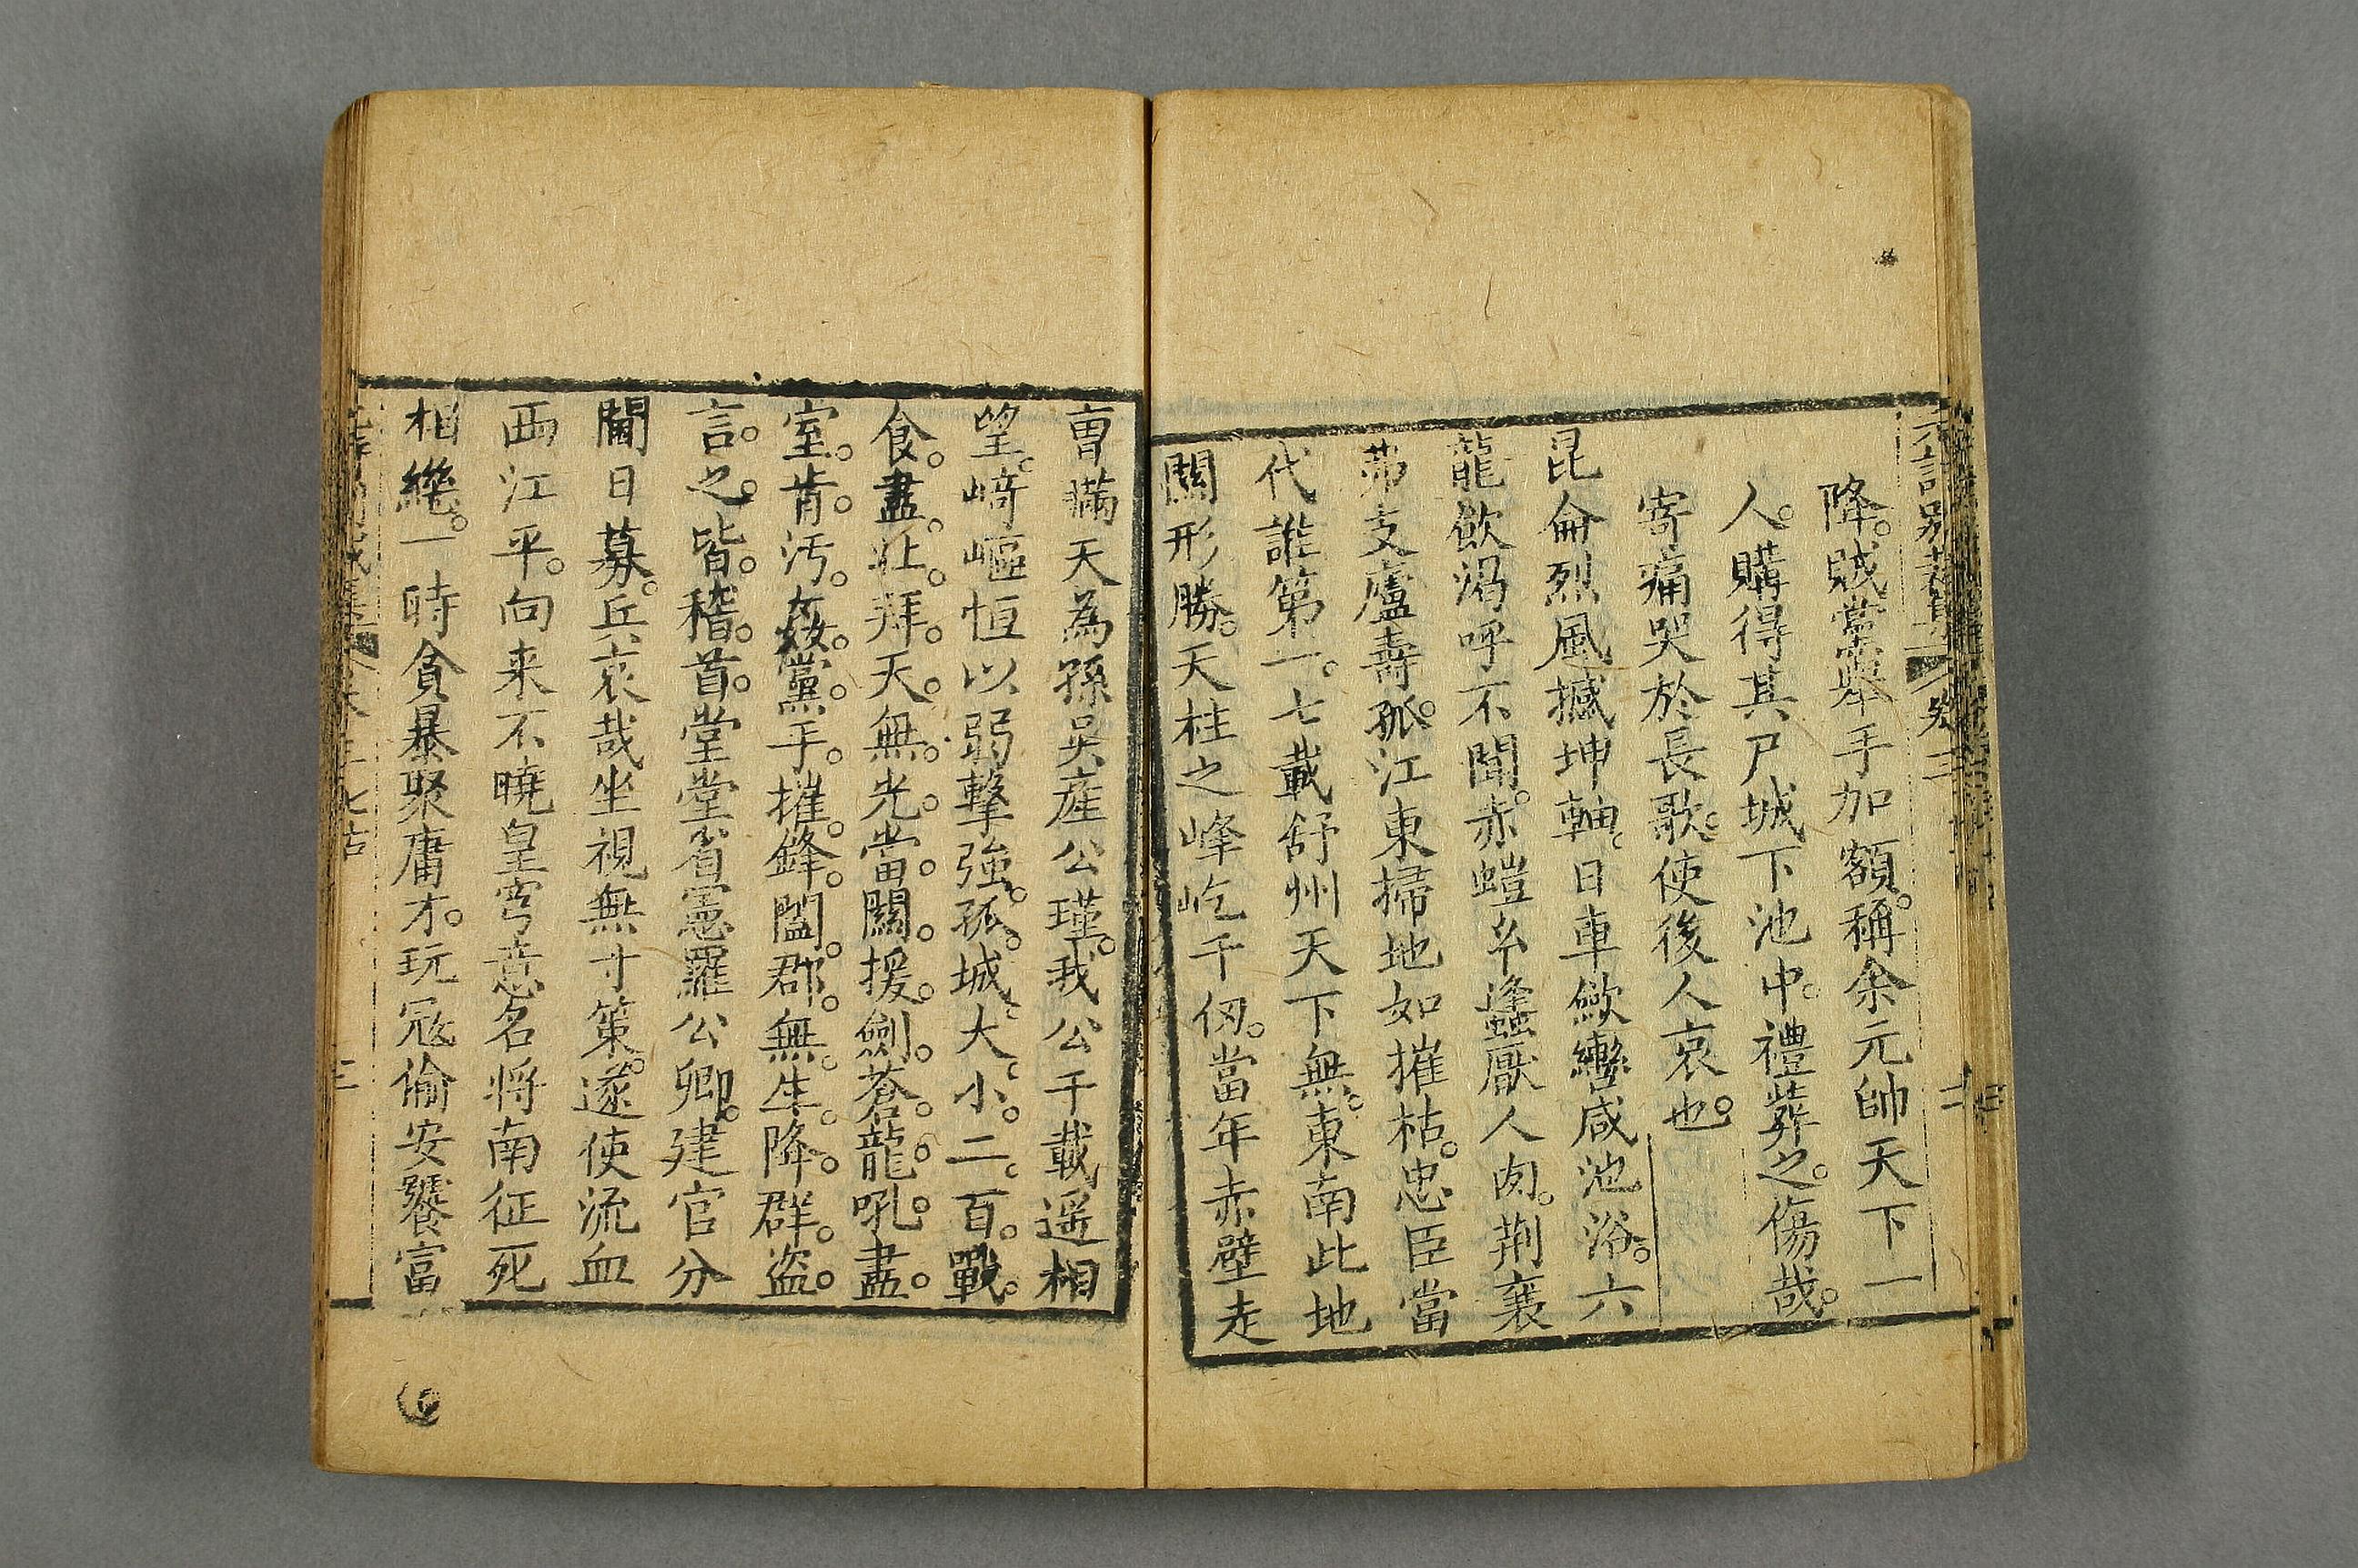 降。賊當舉手加額。稱余元帥天下一
人。購得其尸城下池中。禮葬之。傷哉。
寄痛哭於長歌。使後人哀也。
昆侖烈風撼坤軸。日車斂轡咸池浴。六
龍飲渴呼不聞。赤螘糸蠭厭人肉。荆襄
弗支廬壽孤。江東掃地如摧枯。忠臣當
代誰第一。七載舒州天下無。東南此地
關形勝。天柱之峰屹千仭。當年赤壁走
曹瞞天為孫吳產公瑾。我公千載遥相
望。﨑嶇恒以弱擊強。孤城大小二百戰。
食盡壯拜天無光。當關援劍蒼龍吼。盡
室肯汚姦黨手。摧鋒闔郡無生降。群盜
言之皆稽首。堂堂省憲羅公卿。建官分
閫日募兵。哀哉坐視無寸策。遂使流血
西江平。向来不曉皇穹意。名将南征死
相繼。一時貪暴聚庸才。玩冦偷安饕富